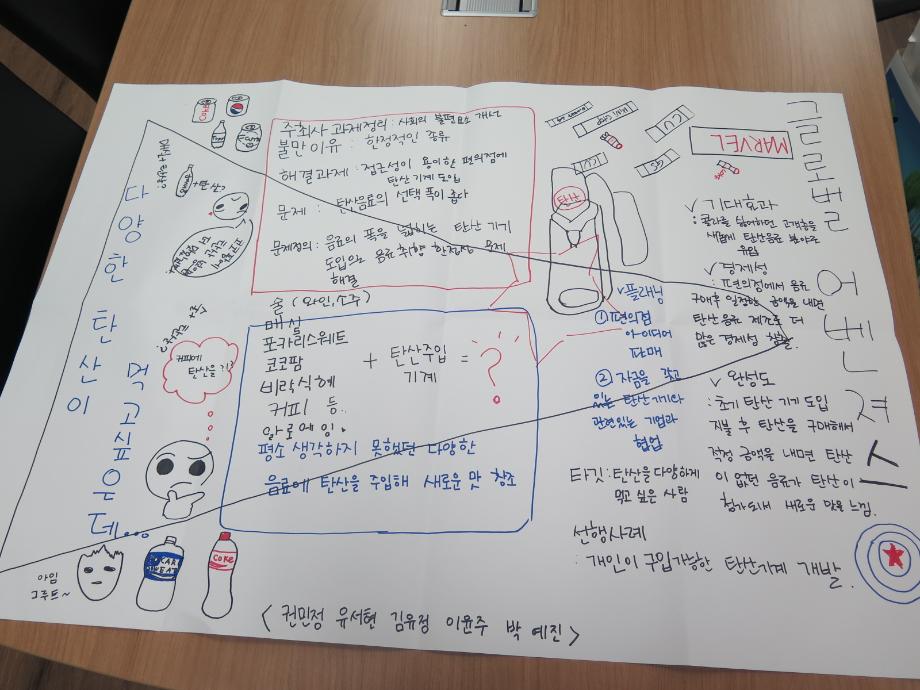 글로벌 어벤져스
MARVEL
다양한 탄산이
먹고싶은데...
Coke
주최사 과제정리 : 사회의 불편요소 개선
불만이유 : 한정적인 종류
해결과제 : 접근성이 용이한 편의점에
탄산 기계 도입
문제 : 탄산음료의 선택 폭이 좁다
문제정의 : 음료의 폭을 넓히는 탄산 기기
도입의로 음료 취향 한정성 문제
해결
술 (와인, 소주)
매실
포카리스웨트
코코팜
비락식혜
커피 등..
알로에 잉.
+ 탄산주입
기계
= ?
평소 생각하지 못했던 다양한
음료에 탄산을 주입해 새로운 맛 창조
커피에
탄산을?
MINI STOP
CU
CU
GS
탄산
✓플래닝
① 편의점
아이디어
판매
② 자금을 갖고
있는 탄산기기와
관련있는 기업과
협업
타깃 : 탄산을 다양하게
먹고 싶은 사람
선행사례
: 개인이 구입가능한 탄산기계 개발.
✓ 기대효과
: 콜라를 싫어하던 고객층을
새롭게 탄산음료 분야로
유입
✓ 경제성
: 편의점에서 음료
구매후 일정한 금액을 내면
탄산음료 제조로 더
많은 경제성 창출.
✓ 완성도
: 초기 탄산 기기 도입
지불 후 탄산을 구매해서
적정 금액을 내면 탄산
이 없던 음료가 탄산이
첨가되서 새로운 맛을 느낌.
아임
그루트~
POCARI
SWEAT
Coke
< 권민정 유서현 김유정 이윤주 박예진 >